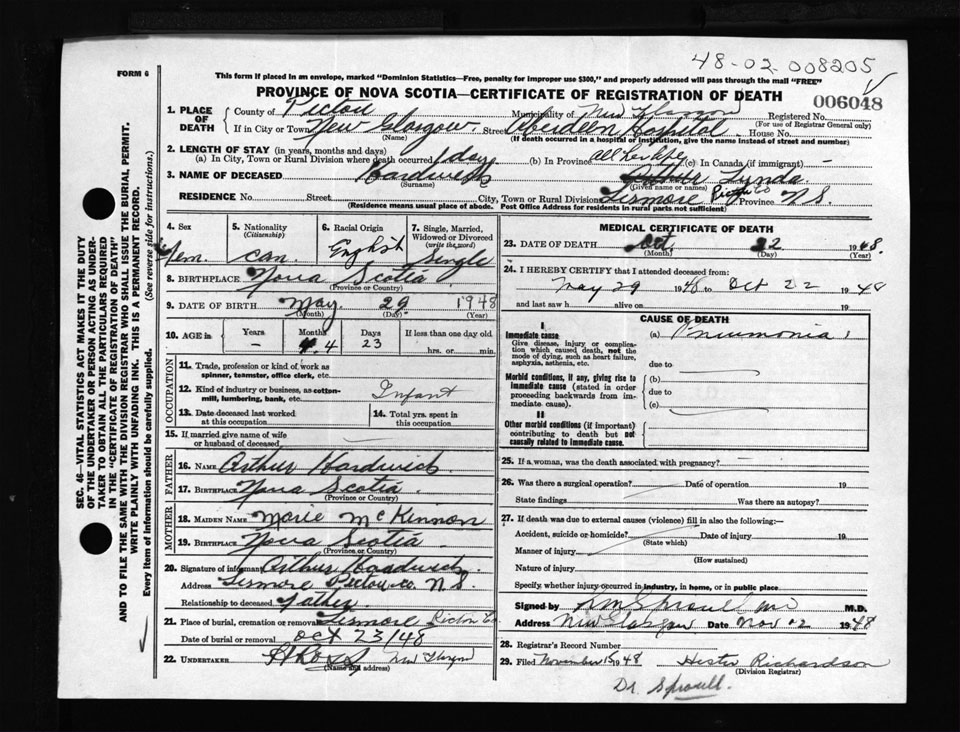 48-02-008205
FORM 6
This form if placed in an envelope, marked "Dominion Statistics—Free, penalty for improper use $300," and properly addressed will pass through the mail "FREE"
PROVINCE OF NOVA SCOTIA—CERTIFICATE OF REGISTRATION OF DEATH
006048
1. PLACE OF DEATH
County of Pictou Municipality of Registered No.
(For use of Registrar General only)
If in City or Town New Glasgow Street Aberdeen Hospital House No.
(Name) (If death occurred in a hospital or institution, give its name instead of street and number)
2. LENGTH OF STAY (in years, months and days)
(a) In City, Town or Rural Division where death occurred 1 day (b) In Province all her life (c) In Canada (if immigrant) -
3. NAME OF DECEASED Hardwick Lynda
(Surname) (Given name or names)
RESIDENCE No. Street City, Town or Rural Division Lismore Pictou Co Province N.S.
(Residence means usual place of abode. Post Office Address for residents in rural parts not sufficient)
4. Sex Fem.
5. Nationality (Citizenship) Can.
6. Racial Origin English
7. Single, Married, Widowed or Divorced (write the word) Single
8. BIRTHPLACE Nova Scotia
(Province or Country)
9. DATE OF BIRTH May 29 1948
(Month) (Day) (Year)
10. AGE in Years - Months 4 Days 23 If less than one day old
hrs. or min.
OCCUPATION
11. Trade, profession or kind of work as spinner, teamster, office clerk, etc.
12. Kind of industry or business, as cotton-mill, lumbering, bank, etc. Infant
13. Date deceased last worked at this occupation
14. Total yrs. spent in this occupation
15. If married give name of wife or husband of deceased
FATHER
16. NAME Arthur Hardwick
17. BIRTHPLACE Nova Scotia
(Province or Country)
MOTHER
18. MAIDEN NAME Marie McKinnon
19. BIRTHPLACE Nova Scotia
(Province or Country)
20. Signature of informant Arthur Hardwick
Address Lismore Pictou Co N.S.
Relationship to deceased Father
21. Place of burial, cremation or removal Lismore Pictou Co
Date of burial or removal Oct 23/48
22. UNDERTAKER
(Name and address)
MEDICAL CERTIFICATE OF DEATH
23. DATE OF DEATH Oct. 22 1948
(Month) (Day) (Year)
24. I HEREBY CERTIFY that I attended deceased from:
May 29 1948 to Oct 22 1948
and last saw h alive on 19
CAUSE OF DEATH
I
Immediate cause
Give disease, injury or complication which caused death, not the mode of dying, such as heart failure, asphyxia, asthenia, etc.
(a) Pneumonia
due to
Morbid conditions, if any, giving rise to immediate cause (stated in order proceeding backwards from immediate cause).
(b)
due to
(c)
II
Other morbid conditions (if important) contributing to death but not causally related to immediate cause.
25. If a woman, was the death associated with pregnancy? -
26. Was there a surgical operation? Date of operation 19
State findings Was there an autopsy?
27. If death was due to external causes (violence) fill in also the following:—
Accident, suicide or homicide? Date of injury 19
(State which)
Manner of injury
(How sustained)
Nature of injury
Specify whether injury occurred in industry, in home, or in public place
Signed by M.D.
Address New Glasgow Date Nov 02 1948
28. Registrar's Record Number
29. Filed November 15 1948 Hester Richardson
(Division Registrar)
Dr. Sproull.
SEC. 46—VITAL STATISTICS ACT MAKES IT THE DUTY
OF THE UNDERTAKER OR PERSON ACTING AS UNDER-
TAKER TO OBTAIN ALL THE PARTICULARS REQUIRED
IN THE "CERTIFICATE OF REGISTRATION OF DEATH"
AND TO FILE THE SAME WITH THE DIVISION REGISTRAR WHO SHALL ISSUE THE BURIAL PERMIT.
WRITE PLAINLY WITH UNFADING INK. THIS IS A PERMANENT RECORD.
Every item of information should be carefully supplied. (See reverse side for instructions.)